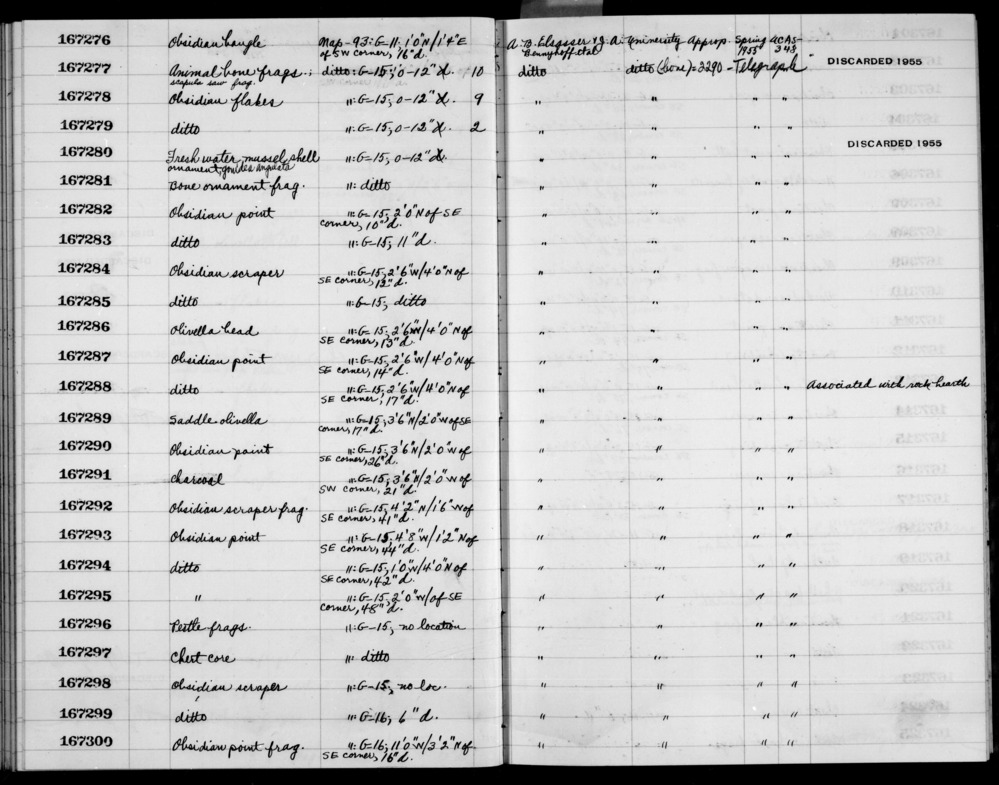 167276 Obsidian bangle Map-93: G-11, 1'0"N/1'4"E A. B. Elsasser & J. A. University Approp. Spring UCAS
of SW corner, 16"d. Bennyhoff et al 1955 348
167277 Animal bone frags.; ditto: G-15; 0-12"d. 10 ditto ditto (bone)=3290 - Telegraph DISCARDED 1955
scapula saw frag.
167278 Obsidian flakes ": G-15, 0-12"d. 9 " " " "
167279 ditto ": G-15, 0-12"d. 2 " " " " DISCARDED 1955
167280 Fresh water mussel shell ": G-15, 0-12"d. " " " "
ornament, Gonidea angulata
167281 Bone ornament frag. ": ditto " " " "
167282 Obsidian point ": G-15, 2'0"N of SE " " " "
corner, 10"d.
167283 ditto ": G-15, 11"d. " " " "
167284 Obsidian scraper ": G-15, 2'6"W/4'0"N of " " " "
SE corner, 12"d.
167285 ditto ": G-15; ditto " " " "
167286 Olivella bead ": G-15, 2'6"W/4'0"N of " " " "
SE corner, 13"d.
167287 Obsidian point ": G-15, 2'6"W/4'0"N of " " " "
SE corner, 14"d.
167288 ditto ": G-15, 2'6"W/4'0"N of " " " " Associated with rock hearth
SE corner, 17"d.
167289 Saddle olivella ": G-15, 3'6"N/2'0"W of SE " " " "
corner, 17"d.
167290 Obsidian point ": G-15, 3'6"N/2'0"W of " " " "
SE corner, 26"d.
167291 Charcoal ": G-15, 3'6"N/2'0"W of " " " "
SW corner, 21"d.
167292 Obsidian scraper frag. ": G-15, 4'2"N/1'6"W of " " " "
SE corner, 41"d.
167293 Obsidian point ": G-15, 4'8"W/1'2"N of " " " "
SE corner, 44"d.
167294 ditto ": G-15, 1'0"W/4'0"N of " " " "
SE corner, 42"d.
167295 " ": G-15, 2'0"W/of SE " " " "
corner, 48"d.
167296 Pestle frags. ": G-15, no location " " " "
167297 Chert core ": ditto " " " "
167298 Obsidian scraper ": G-15, no loc. " " " "
167299 ditto ": G-16, 6"d. " " " "
167300 Obsidian point frag. ": G-16, 11'0"W/3'2"N of " " " "
SE corner, 16"d.